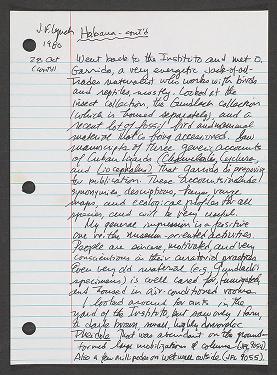 J.F. Lynch
1980
Habana - cont'd
28 Oct
(cont'd)
Went back to the Instituto and met O.
Garrido, a very energetic jack-of-all-
trades naturalist who works with birds
and reptiles mostly. Looked at the
insect collection, the Gundlach collection
(which is housed separately), and a
recent lot of fossil bird and mammal
material that is being accessioned. Saw
manuscripts of three generic accounts
of Cuban lizards (Chamaeleolis, Cyclura,
and Leiocephalus) that Garrido is preparing
for publication. These accounts include
synonymies, descriptions, keys, range
maps, and ecological profiles for all
species, and will be very useful.
My general impression is positive
one in the museum-oriented activities.
People are sincere, motivated and very
conscientious in their curatorial practices.
Even very old material (e.g. Gundlach's
specimens) is well cared for, fumigated,
and housed in air-conditioned rooms.
I looked around for ants in the
yard of the Instituto, but saw only 1 form,
a dark brown, small, highly dimorphic
Pheidole that was abundant on the ground-
formed large mobilization of columns (JFL 9054).
Also a few millipedes on wet wall outside (JFL 9055).